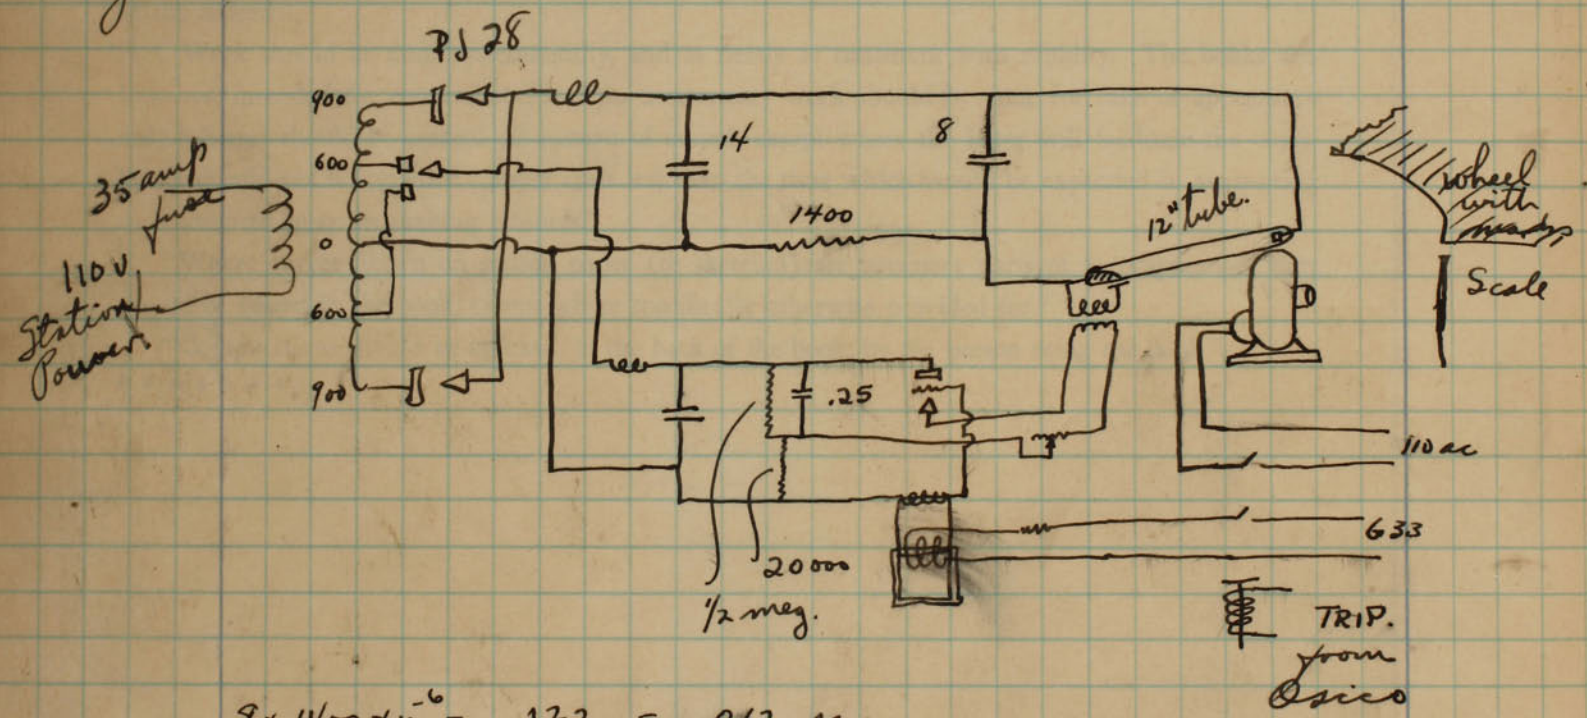 PJ 28
900
600
0
600
900
35 amp
fuse
110 V
Station
Power.
14
8
1400
12" tube.
wheel
with
marks
Scale
.25
110 ac
G 33
20000
1/2 meg.
TRIP.
from
Osico